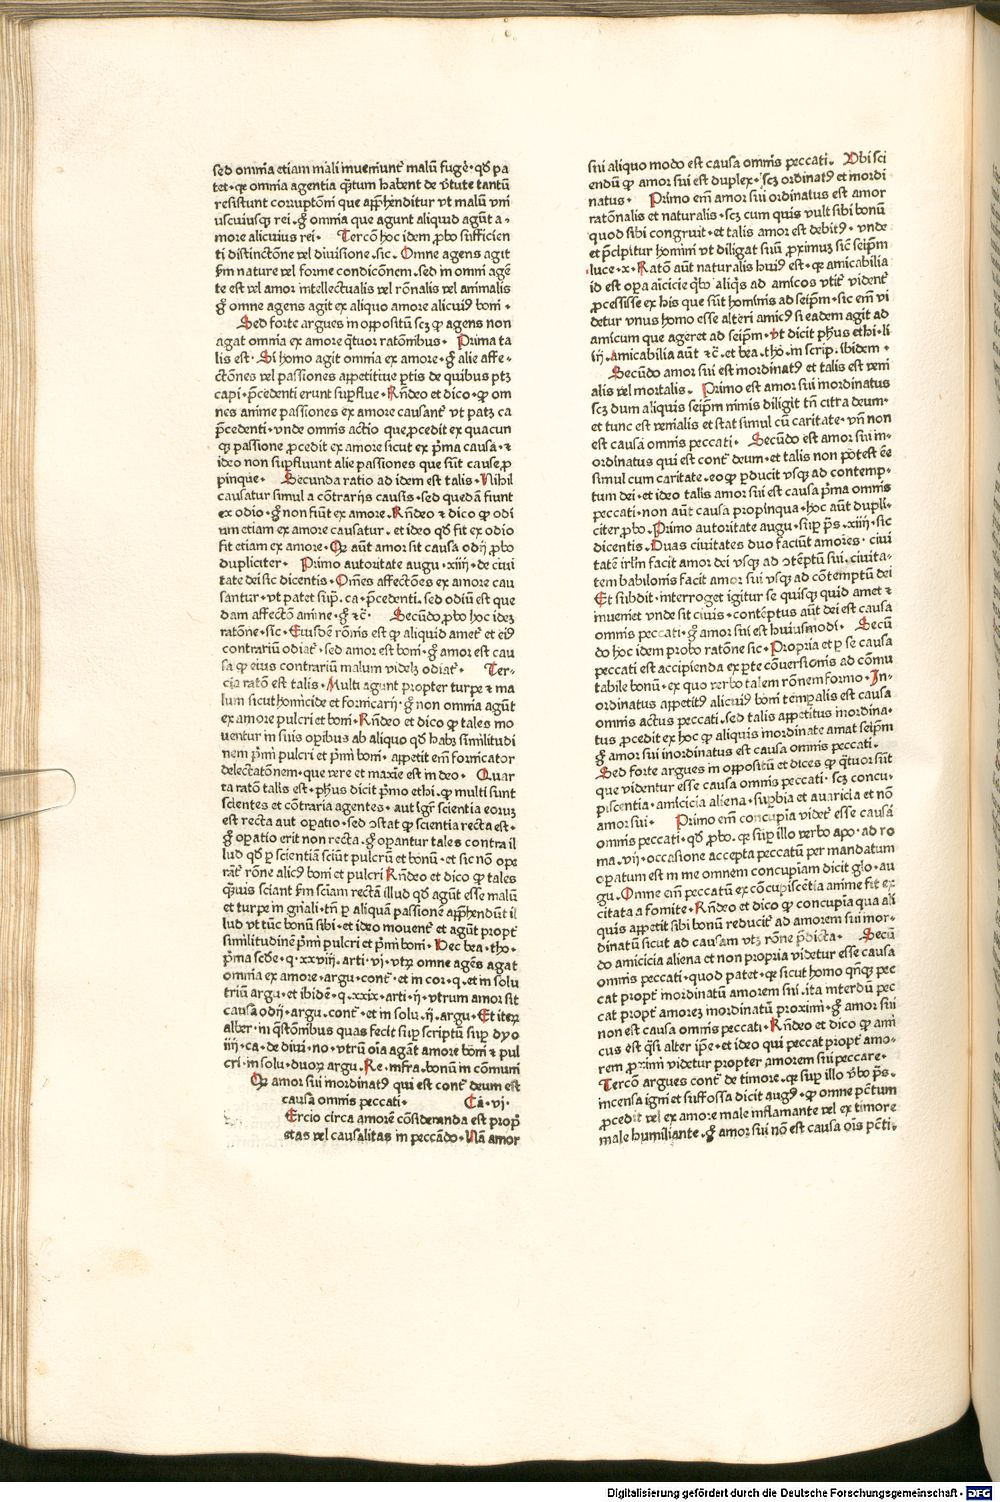 sed omnia etiam mali inueniunt᷑ malū fugē᷑· qđ pa
tet·qꝛ omnia agentia qͣtum habent de v̓tute tantū
resistunt corruptōni que apph̓enditur vt malū vni
uscuiusqꝫ rei·g̊ omnia que agunt aliquid agūt a-
more alicuius rei· Tercō hoc idem ꝓbo sufficien
ti distinctōne vel diuisione·sic· Omne agens agit
s̄m nature vel forme condicōnem·sed in omni agē
te est vel amor intellectualis vel rōnalis vel animalis
g̊ omne agens agit ex aliquo amore alicuiꝰ boni·
Sed forte argues in oppositū scꝫ ꝙ agens non
agat omnia ex amore qͣtuor ratōnibus· Prima ta
lis est· Si homo agit omnia ex amore·g̊ alie affe-
ctōnes vel passiones appetitiue ꝑtis de quibus ptꝫ
capi·p̄cedenti erunt suꝑflue·Rn̄deo et dico·ꝙ om
nes anime passiones ex amore causant᷑ vt patꝫ ca
p̄cedenti·vnde omnis actio que ꝓcedit ex quacun
qꝫ passione ꝓcedit ex amore sicut ex pͥma causa·⁊
ideo non suꝑfluunt alie passiones que sūt cause ꝓ
pinque· Secunda ratio ad idem est talis·Nihil
causatur simul a cōtrarijs causis·sed quedā fiunt
ex odio·g̊ non fiūt ex amore·Rn̄deo ⁊ dico ꝙ odi
um etiam ex amore causatur·et ideo qđ fit ex odio
fit etiam ex amore·Qꝛ aūt amor sit causa odij ꝓbo
dupliciter· Primo autoritate augu·xiiij·de ciui
tate dei sic dicentis·Om̄es affectōnes ex amore cau
santur·vt patet sup̄·ca·p̄cedenti·sed odiū est que
dam affectō anime·g̊ ⁊c̄· Secūdo ꝓbo hoc idez
ratōne·sic·Eiusdē rōnis est ꝙ aliquid amet᷑ et eiꝰ
contrariū odiat᷑·sed amor est boni·g̊ amor est cau
sa ꝙ eius contrariū malum videlꝫ odiat᷑· Ter-
cia ratō est talis·Multi agunt propter turpe ⁊ ma
lum sicut homicide et fornicarij·g̊ non omnia agūt
ex amore pulcri et boni·Rn̄deo et dico ꝙ tales mo
uentur in suis oꝑibus ab aliquo qđ habꝫ similitudi
nem pͥmi pulcri et pͥmi boni·appetit em̄ fornicator
delectatōnem·que vere et maxīe est in deo· Quar
ta ratō talis est·ph̓us dicit pͥmo ethi·ꝙ multi sunt
scientes et cōtraria agentes·aut igr̄ scientia eorum
est recta aut oꝑatio·sed ↄstat ꝙ scientia recta est·
g̊ oꝑatio erit non recta·g̊ oꝑantur tales contra il
lud qđ ꝑ scientiā sciūt pulcrū et bonū·et sic nō ope
rāt᷑ rōne alicꝰ boni et pulcri Rn̄deo et dico ꝙ tales
qͣuis sciant s̄m sciam rectā illud qđ agūt esse malū
et turpe in gn̄ali·tn̄ ꝑ aliquā passionē apph̓endūt il
lud vt tūc bonū sibi·et ideo mouent᷑ et agūt propt᷑
similitudinē pͥmi pulcri et pͥmi boni·Hec bea·tho·
pͥma scd̄e·q·xxviij·arti·vj·vtꝝ omne agēs agat
omnia ex amore·argu·cont᷑·et in cor·q·et in solu
triū argu·et ibidē·q·xxix·arti·ij·vtrum amor sit
causa odij·argu·cont᷑·et in solu·ij·argu·Et iteꝝ
alber·in qͣstōnibus quas fecit suꝑ scriptū suꝑ dyo
iiij·ca·de diui·no·vtrū oīa agāt amore boni ⁊ pul
cri·in solu·duoꝝ argu·Re·infra·bonū in cōmuni
Qꝛ amor sui inordinatꝰ qui est cont᷑ deum est
causa omnis peccati· Ca·vi·
Ercio circa amorē cōsideranda est propͥ
etas vel causalitas in peccādo·Nā amor
sui aliquo modo est causa omnis peccati· Vbi sci
endū ꝙ amor sui est duplex·scꝫ ordinatꝰ et inordi
natus· Primo em̄ amor sui ordinatus est amor
ratōnalis et naturalis·scꝫ cum quis vult sibi bonū
quod sibi congruit·et talis amor est debitꝰ·vnde
et p̄cipitur homini vt diligat suū ꝓximū sic̄ seip̄m
luce·x·Ratō aūt naturalis huiꝰ est·qꝛ amicabilia
id est oꝑa aīcicie qͥbꝰ aliqͥs ad amicos vtit᷑ vident᷑
ꝓcessisse ex his que sūt hominis ad seip̄m·sic em̄ vi
detur vnus homo esse alteri amicꝰ si eadem agit ad
amicum que ageret ad seip̄m·vt dicit ph̓us ethi·li
iij·Amicabilia aūt ⁊c̄·et bea·tho·in scrip·ibidem·
Secūdo amor sui est inordinatꝰ et talis est veni
alis vel mortalis· Primo est amor sui inordinatus
scꝫ dum aliquis seip̄m nimis diligit tn̄ citra deum·
et tunc est venialis et stat simul cū caritate·vn̄ non
est causa omnis peccati· Secūdo est amor sui in-
ordinatus qui est cont᷑ deum·et talis non potest eē
simul cum caritate·eo ꝙ ꝑducit vsqꝫ ad contemp-
tum dei·et ideo talis amor sui est causa pͥma omnis
peccati·non aūt causa propinqua·hoc aūt dupli-
citer ꝓbo·Primo autoritate augu·suꝑ ps̄·xiiij·sic
dicentis·Duas ciuitates duo faciūt amores·ciui
tatē irl̄m facit amor dei vsqꝫ ad ↄtēptū sui·ciuita-
tem babilonis facit amor sui vsqꝫ ad cōtemptū dei
Et subdit·interroget igitur se quisqꝫ quid amet ⁊
inueniet vnde sit ciuis·contēptus aūt dei est causa
omnis peccati·g̊ amor sui est huiusmodi· Secū
do hoc idem probo ratōne sic·Propria et ꝑ se causa
peccati est accipienda ex ꝑte cōuersionis ad cōmu
tabile bonū·ex quo verbo talem rōnem formo·In-
ordinatus appetitꝰ alicuiꝰ boni tempalis est causa
omnis actus peccati·sed talis appetitus inordina-
tus ꝓcedit ex hoc ꝙ aliquis inordinate amat seip̄m
g̊ amor sui inordinatus est causa omnis peccati·
Sed forte argues in oppositū et dices ꝙ qͣtuor sūt
que videntur esse causa omnis peccati·scꝫ concu-
piscentia·amicicia aliena·suꝑbia et auaricia et nō
amor sui· Primo em̄ concupīa videt᷑ esse causa
omnis peccati·qđ ꝓbo·qꝛ suꝑ illo verbo apo·ad ro
ma·vij·occasione accepta peccatū per mandatum
oꝑatum est in me omnem concupīam dicit glo·au
gu·Omne em̄ peccatū ex cōcupiscētia anime fit ex
citata a fomite·Rn̄deo et dico ꝙ concupīa qua ali
quis appetit sibi bonū reducit᷑ ad amorem sui inor-
dinatū sicut ad causam vtꝫ rōne p̄dicta· Secū
do amicicia aliena et non propria videtur esse causa
omnis peccati·quod patet·qꝛ sicut homo qn̄qꝫ pec
cat propt᷑ inordinatū amorem sui·ita interdū pec
cat propt᷑ amorē inordinatū proximi·g̊ amor sui
non est causa omnis peccati·Rn̄deo et dico ꝙ ami
cus est qͣsi alter ip̄e·et ideo qui peccat propt᷑ amo-
rem ꝓximi videtur propter amorem sui peccare·
Tercō argues cont᷑ de timore·qꝛ suꝑ illo v̓bo ps̄·
incensa igni et suffossa dicit augꝰ·ꝙ omne pctm̄
ꝓcedit vel ex amore male inflamante vel ex timore
male humiliante·g̊ amor sui nō est causa oīs pcti·
Digitalisierung gefördert durch die Deutsche Forschungsgemeinschaft - DFG